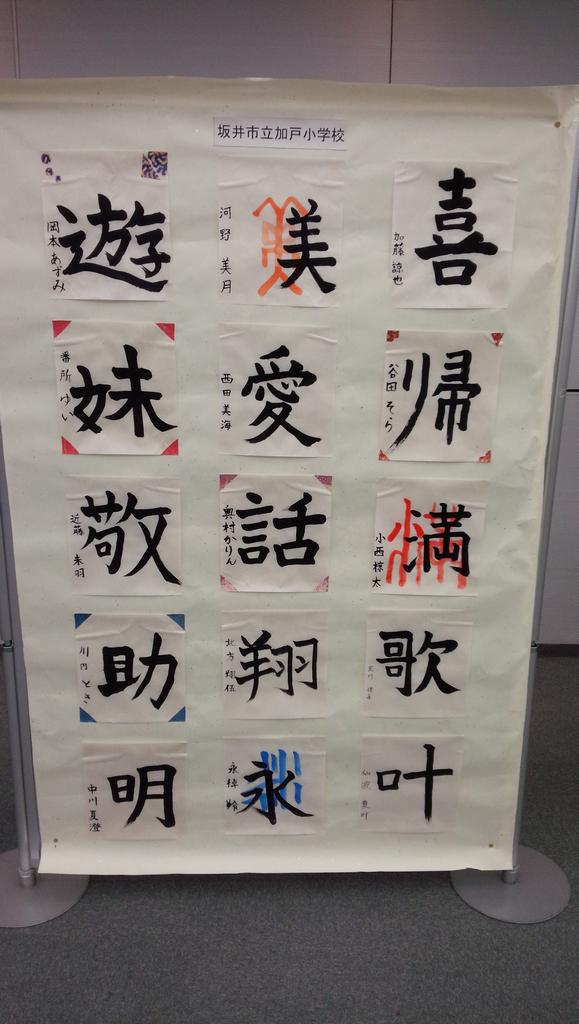 坂井市立加戸小学校
喜
加藤諒也
美
河野 美月
遊
岡本あずみ
帰
谷田そら
愛
西田美海
妹
番所ゆい
満
小西椋太
話
奥村かりん
敬
近藤 朱羽
歌
翔
北方翔伍
助
川内とき
叶
永
明
中川夏澄